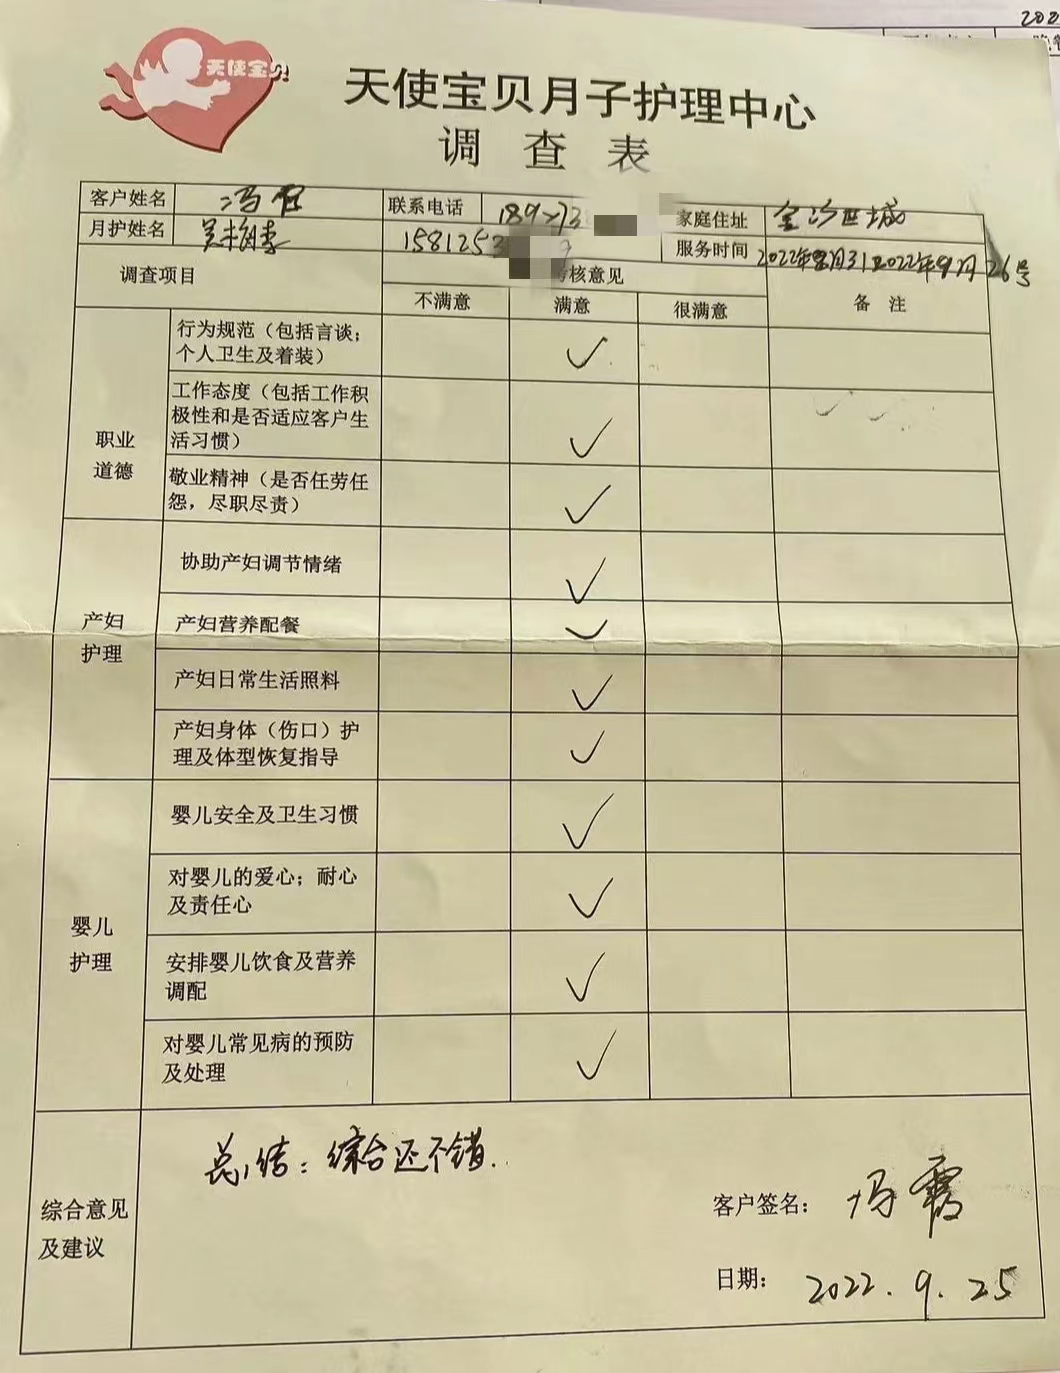 天使宝贝
202
天使宝贝月子护理中心
调查表
客户姓名
冯
联系电话
189
73
家庭住址
金沙世城
月护姓名
1581253
服务时间
2022年8月31日2022年9月26号
调查项目
考核意见
备注
不满意
满意
很满意
职业
道德
行为规范（包括言谈；
个人卫生及着装）
✓
工作态度（包括工作积
极性和是否适应客户生
活习惯）
✓
敬业精神（是否任劳任
怨，尽职尽责）
✓
产妇
护理
协助产妇调节情绪
✓
产妇营养配餐
✓
产妇日常生活照料
✓
产妇身体（伤口）护
理及体型恢复指导
✓
婴儿
护理
婴儿安全及卫生习惯
✓
对婴儿的爱心；耐心
及责任心
✓
安排婴儿饮食及营养
调配
✓
对婴儿常见病的预防
及处理
✓
综合意见
及建议
总结：综合还不错.
客户签名：冯霞
日期：2022.9.25